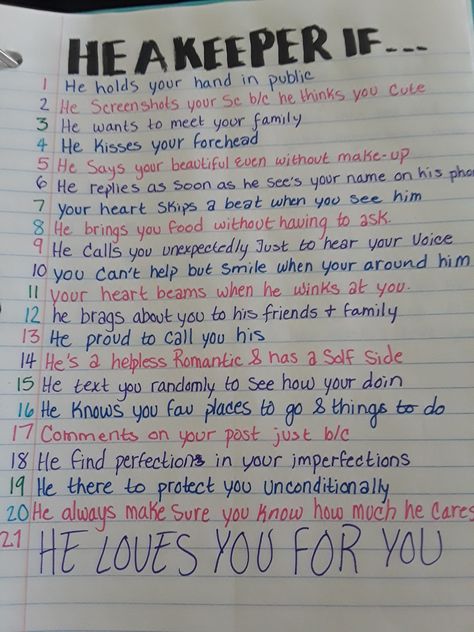 HE A KEEPER IF...
1 He holds your hand in public
2 He Screenshots your Sc b/c he thinks you cute
3 He wants to meet your family
4 He Kisses your forehead
5 He Says your beautiful even without make-up
6 He replies as soon as he see's your name on his pho
7 your heart skips a beat when you see him
8 He brings you food without having to ask.
9 He Calls you unexpectedly Just to hear your Voice
10 you can't help but smile when your around him
11 your heart beams when he winks at you.
12 he brags about you to his friends + family
13 He proud to call you his
14 He's a helpless Romantic & has a Solf Side
15 He text you randomly to see how your doin
16 He Knows you fav places to go & things to do
17 Comments on your post just b/c
18 He find perfections in your imperfections
19 He there to protect you unconditionally
20 He always make Sure you Know how much he cares
21 HE LOVES YOU FOR YOU